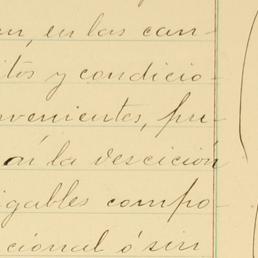 en, en las can-
itos y condicio-
venientes, pu-
ai la descición
igables compo-
cional ó sin